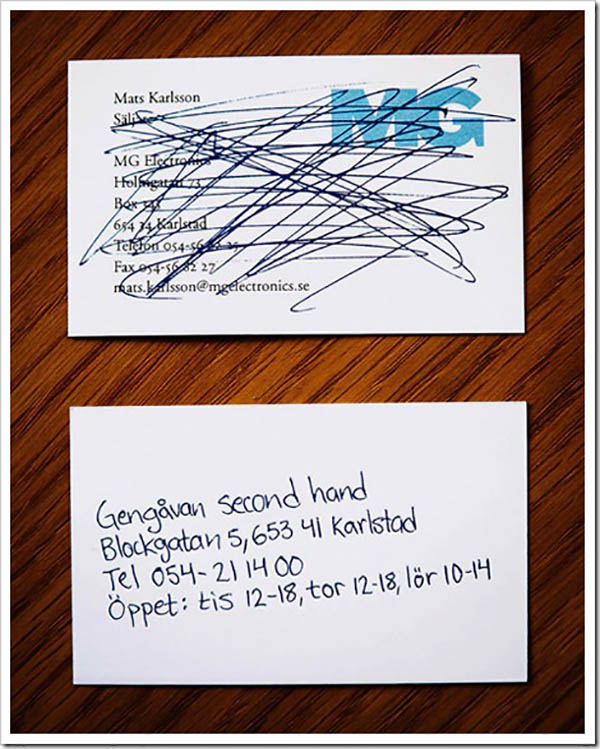 Mats Karlsson
Säljare
MG
MG Electronics
73
Box
654 34 Karlstad
Telefon 054-56
Fax 054-56 82 27
mats.karlsson@mgelectronics.se
Gengåvan second hand
Blockgatan 5, 653 41 Karlstad
Tel 054-21 14 00
Öppet: tis 12-18, tor 12-18, lör 10-14